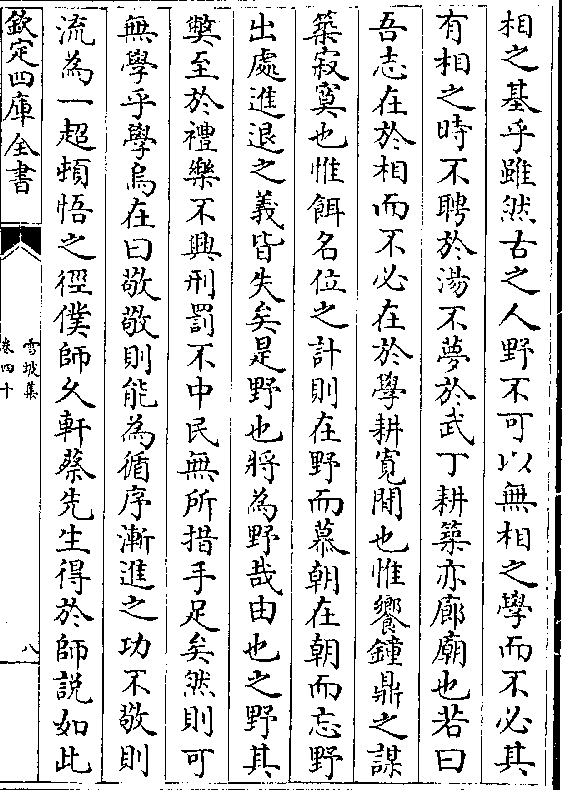 相之基乎雖然古之人野不可以無相之學而不必其
有相之時不聘於湯不夢於武丁耕築亦廊廟也若曰
吾志在於相而不必在於學耕寬閒也惟饗鐘鼎之謀
築寂寞也惟餌名位之計則在野而慕朝在朝而忘野
出處進退之義皆失矣是野也將為野哉由也之野其
獘至於禮樂不興刑罰不中民無所措手足矣然則可
無學乎學烏在曰敬敬則能為循序漸進之功不敬則
流為一超頓悟之徑僕師乆軒蔡先生得於師說如此
欽定四庫全書
雪坡集
卷四十
八